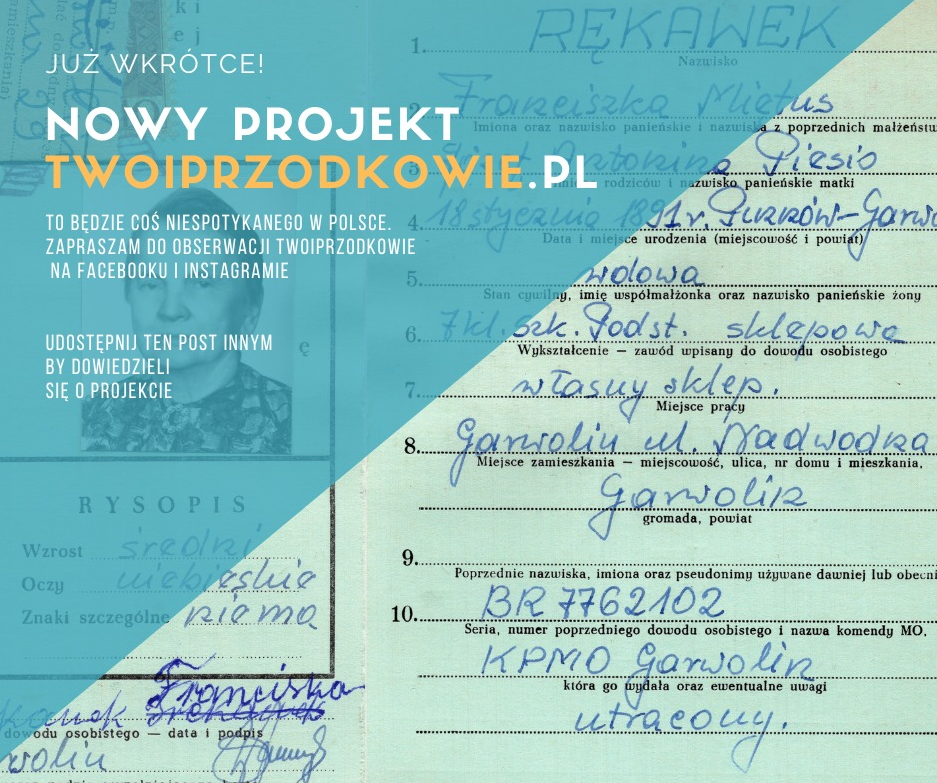 JUŻ WKRÓTCE!
NOWY PROJEKT
TWOIPRZODKOWIE.PL
TO BĘDZIE COŚ NIESPOTYKANEGO W POLSCE.
ZAPRASZAM DO OBSERWACJI TWOIPRZODKOWIE
NA FACEBOOKU I INSTAGRAMIE
UDOSTĘPNIJ TEN POST INNYM
BY DOWIEDZIELI
SIĘ O PROJEKCIE
RYSOPIS
Wzrost średni
Oczy niebieskie
Znaki szczególne niema
Franciszka
dowodu osobistego — data i podpis
1. RĘKAWEK
Nazwisko
Franciszka Miętus
Imiona oraz nazwisko panieńskie i nazwiska z poprzednich małżeństw
Antonina Piesio
rodziców i nazwisko panieńskie matki
4. 18 stycznia 1891 r.
Data i miejsce urodzenia (miejscowość i powiat)
5. wdowa
Stan cywilny, imię współmałżonka oraz nazwisko panieńskie żony
6. 7 kl. szk. Podst. sklepowa
Wykształcenie — zawód wpisany do dowodu osobistego
7. własny sklep.
Miejsce pracy
8. Garwolin ul. Nadwodna
Miejsce zamieszkania — miejscowość, ulica, nr domu i mieszkania,
Garwolin
gromada, powiat
9.
Poprzednie nazwiska, imiona oraz pseudonimy używane dawniej lub obecni
10. BR 7762102
Seria, numer poprzedniego dowodu osobistego i nazwa komendy MO,
KPMO Garwolin
która go wydała oraz ewentualne uwagi
utracony.